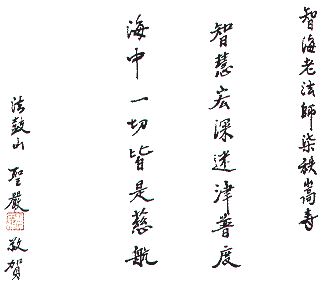 智海老法師柒秩嵩壽
智慧宏深迷津普度
海中一切皆是慈航
法鼓山 聖嚴 敬賀